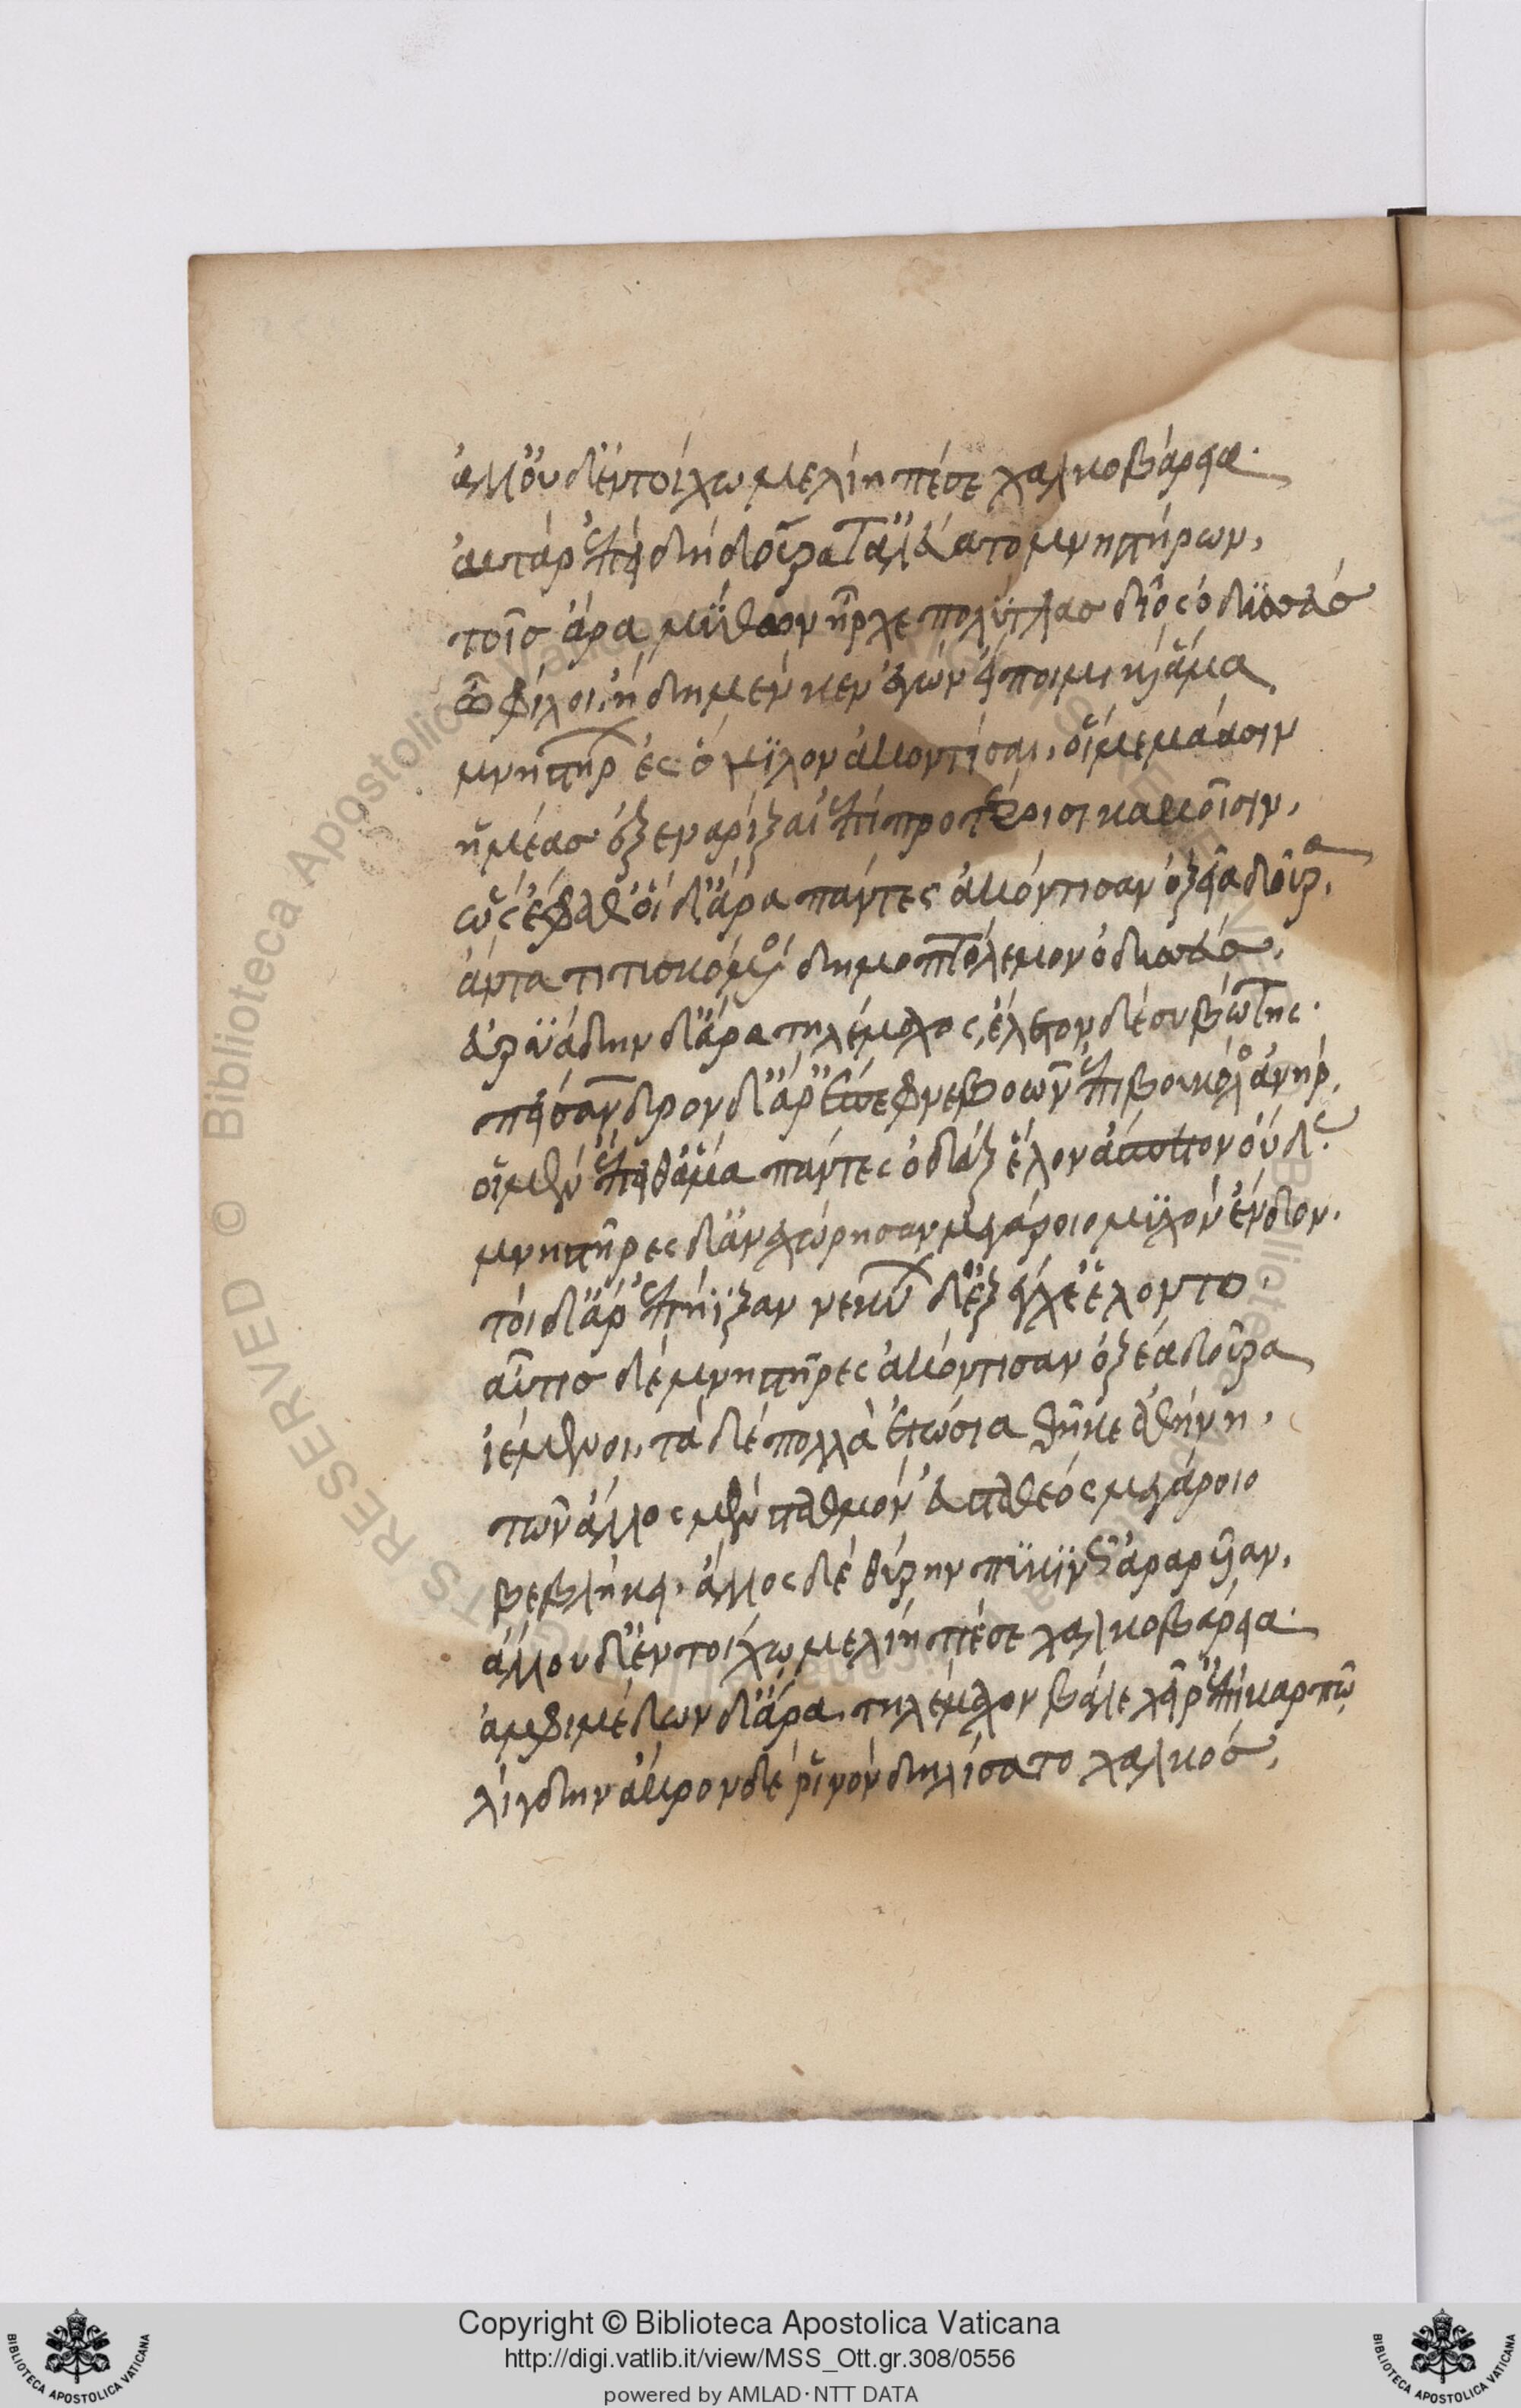 ἄλλου δ' ἐν τοίχω μελίη πέσε χαλκοβάρεια·
αὐτὰρ ἐπεὶ δὴ δούρατ' ἀλεύατο μνηστήρων,
τοῖσ ἄρα μύθων ἦρχε πολύτλασ δῖος ὀδυσσεύσ
ὦ φίλοι, ἤδη μέν κεν ἐγὼν εἴποιμι κ' ἄμμα
μνηστήρ ἐς ὅμιλον ἀκοντίσαι, οἳ μεμάασιν
ἡμέασ ἐξεναρίξαι ἐπὶ προτέροισι κακοῖσιν,
ὣς ἔφαθ' οἱ δ' ἄρα πάντες ἀκόντισαν ὀξεῖα δοῦρα,
ἄντα τιτισκόμενοι δημοπτόλεμον ὀδυσσεύσ,
εὐρυάδην δ' ἄρα τηλέμαχος, ἔλατον δὲ συβώτης·
πείσανδρον δ' ἄρ' ἔπεφνε βοῶν ἐπιβουκόλος ἀνήρ,
οἱ μὲν ἔπειθ' ἅμα πάντες ὀδὰξ ἕλον ἄσπετον οὖδας
μνηστῆρες δ' ἀνεχώρησαν μεγάροιο μυχὸν ἔνδον.
τοὶ δ' ἄρ' ἐπήϊξαν νεκύων δ' ἐξ ἔγχε' ἕλοντο·
αὖτισ δὲ μνηστῆρες ἀκόντισαν ὀξέα δοῦρα
ἱέμενοι, τὰ δὲ πολλὰ ἐτώσια θῆκε ἀθήνη,
τῶν ἄλλος μὲν σταθμὸν ἐϋσταθεὸς μεγάροιο
βεβλήκει, ἄλλος δὲ θύρην πυκινῶς ἀραρυῖαν,
ἄλλου δ' ἐν τοίχω μελίη πέσε χαλκοβάρεια·
ἀμφιμέδων δ' ἄρα τηλέμαχον βάλε χεῖρ' ἐπὶ καρπῷ
λίγδην ἄκρον δὲ ῥινὸν δηλίσατο χαλκόσ,
Copyright © Biblioteca Apostolica Vaticana
http://digi.vatlib.it/view/MSS_Ott.gr.308/0556
powered by AMLAD·NTT DATA